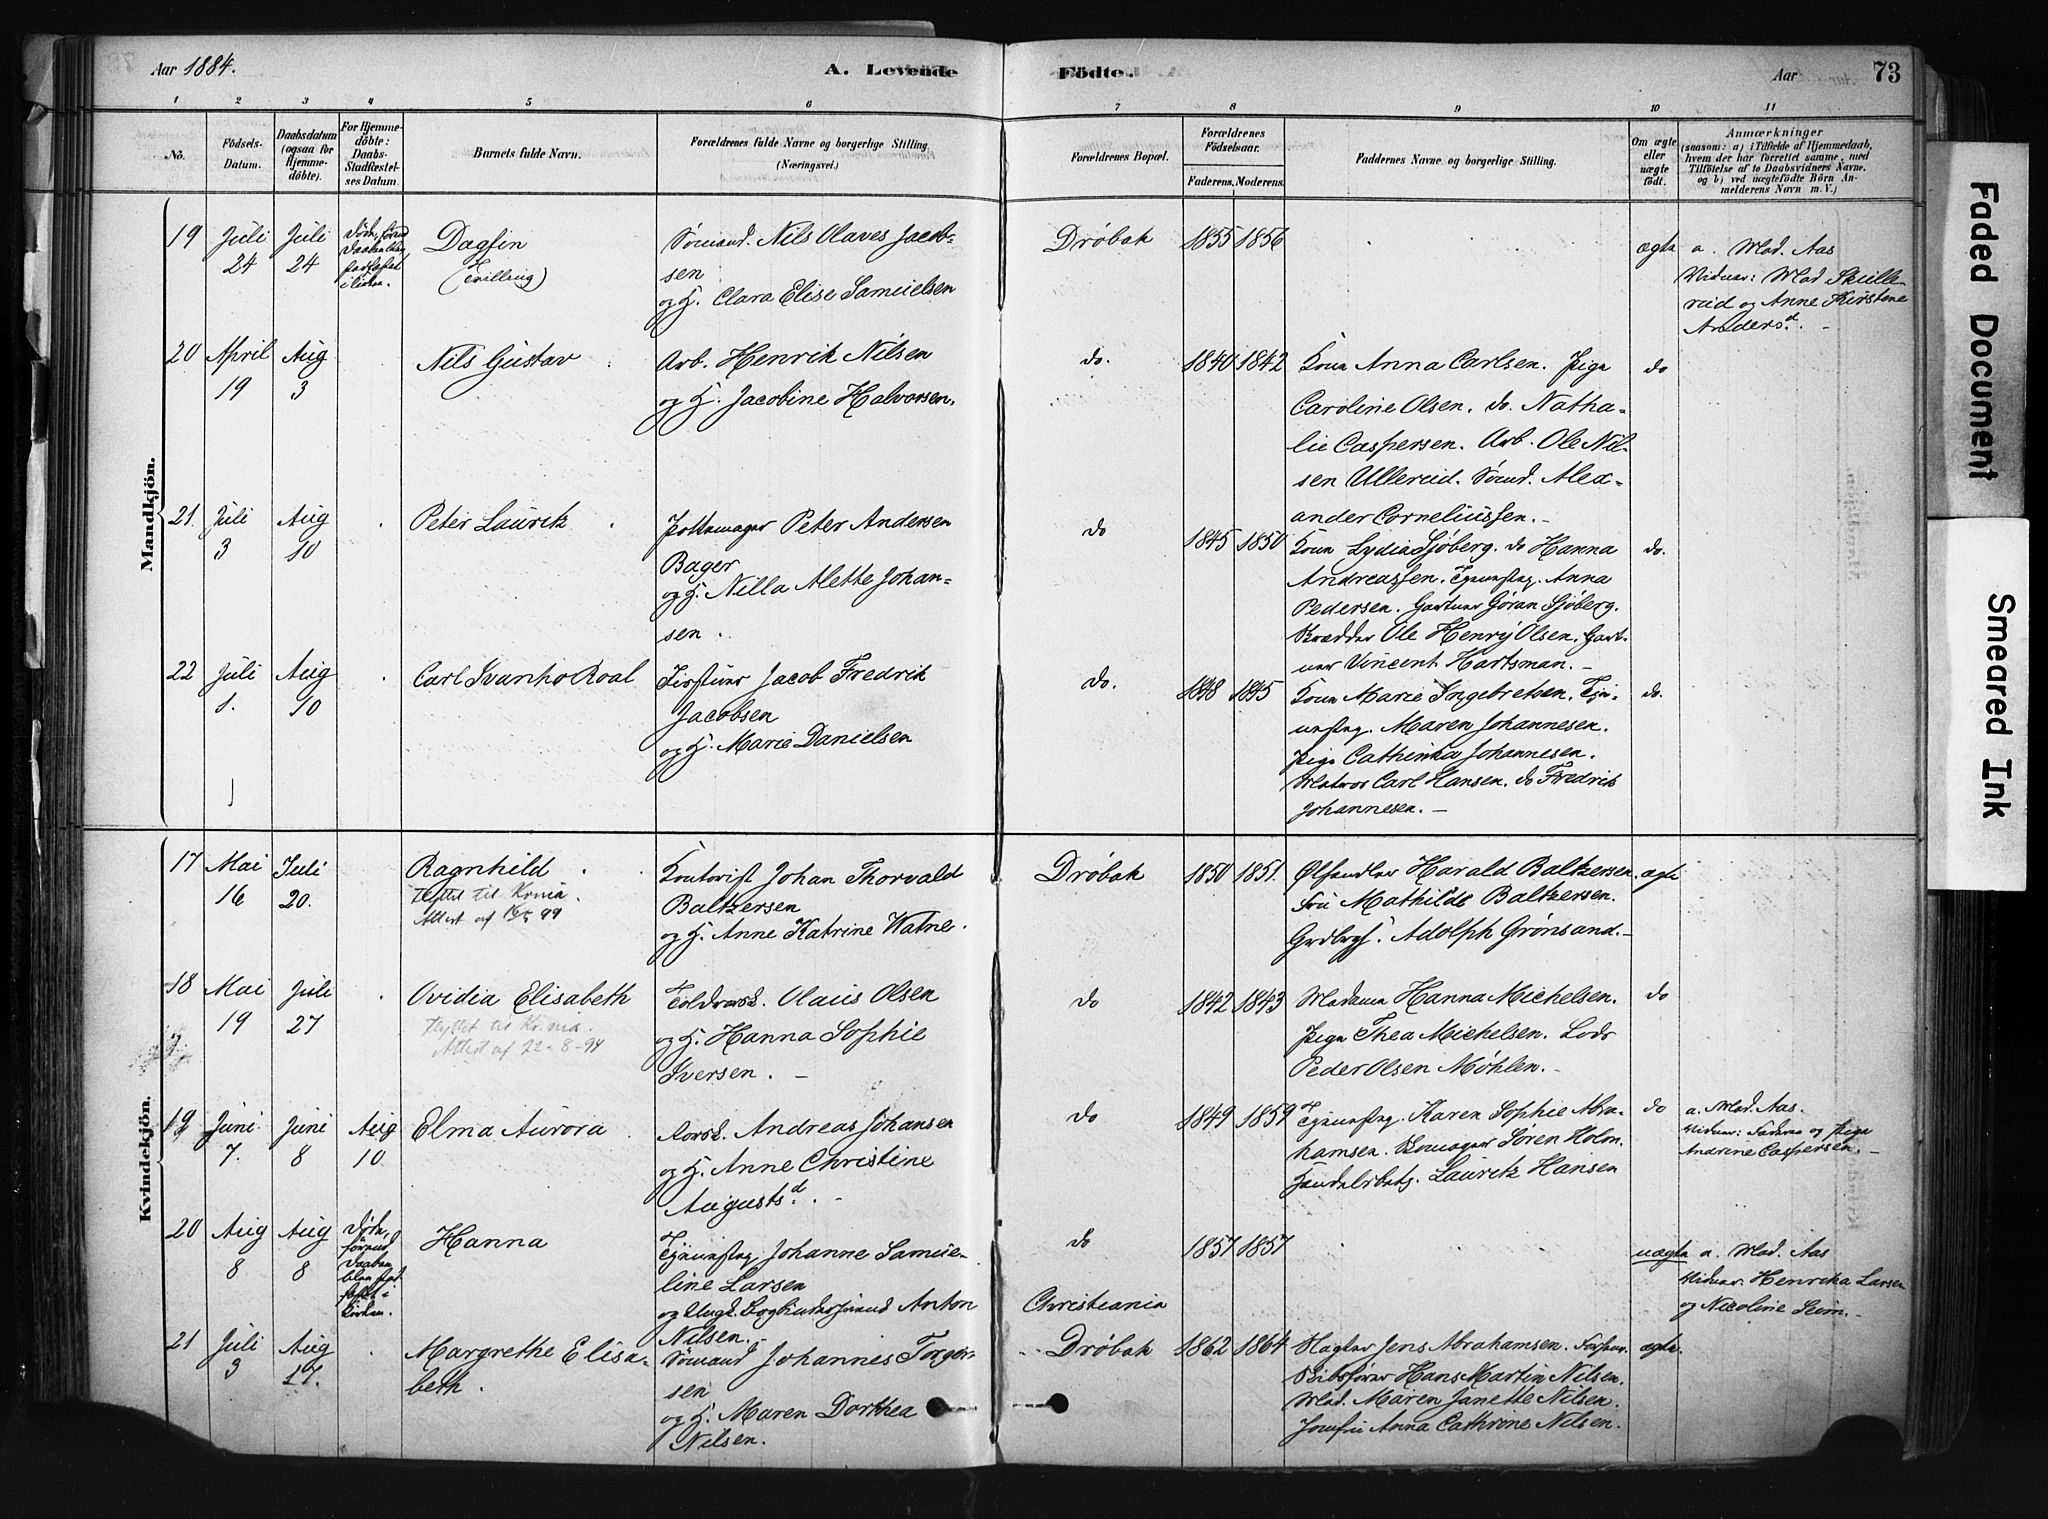 Aar 1884.
A. Levende
Födte.
Aar
73
1 2 3 4 5 6 7 8 9 10 11
No.
Födsels-
Datum.
Daabsdatum
(ogsaa for
Hjemme-
döbte).
For Hjemme-
döbte:
Daabs-
Stadfæstel-
ses Datum.
Barnets fulde Navn.
Forældrenes fulde Navne og borgerlige Stilling.
(Næringsvei.)
Forældrenes Bopæl.
Forældrenes
Födselsaar.
Faderens. Moderens.
Faddernes Navne og borgerlige Stilling.
Om ægte
eller
uægte
födt.
Anmærkninger
(saasom: a) i Tilfælde af Hjemmedaab,
hvem der har forrettet samme, med
Tilföielse af to Daabsvidners Navne.
og b) ved uægtefödte Börn An-
melderens Navn m. V.)
Mandkjön.
19
Juli
24
Juli
24
Dagfin
(Tvilling)
Sömand. Nils Olaves Jacob-
sen
og H. Clara Elise Samuelsen
Drøbak
1855 1856
ægte
a. Mad. Aas
Vidner: Mad Skulle-
rud og Anne Kirstine
Andersd. -
20
April
19
Aug
3
Nils Gustav
Arb. Henrik Nilsen
og H. Jacobine Halvorsen.
do.
1840 1842
Kone Anna Carlsen. Pige
Caroline Olsen. do. Natha-
lie Caspersen. Arb. Ole Nil-
sen Ullerud. Sömd. Alex-
ander Corneliussen. -
do
21.
Juli
3
Aug
10
Peter Lauritz
Pottemager Peter Andersen
Bager
og H. Nilla Alette Johan-
sen.
do
1845 1850
Kone Lydia Sjøberg. do Hanna
Andreassen. Tjenestpg. Anna
Pedersen. Gartner Gøran Sjøberg.
Skrædder Ole Henrij Olsen. Gart-
ner Vincent Hartsman. -
do.
22
Juli
1.
Aug
10
Carl Ivanho Roal
Jacob Fredrik
Jacobsen
og H. Marie Danielsen
do.
1848 1845
Kone Marie Ingebretsen. Tjen-
estpg. Maren Johannesen.
Pige Cathinka Johannesen.
Matros Carl Hansen. do Fredrik
Johannesen. -
do.
Kvindekjön.
17
Mai
16
Juli
20.
Ragnhild
Flyttet til Krnia.
Attest af 99
Kontorist Johan Thorvald
Baltzersen
og H. Anne Katrine Watne.
Drøbak
1850 1851.
Ølhandler Harald Baltzersen.
Fru Mathilde Baltzersen.
Adolph Grønsand. -
ægte
18
Mai
19
Juli
27
Ovidia Elisabeth
Flyttet til Kr.nia.
Attest af 22-8-94
Toldvorsk. Olaus Olsen
og H. Hanna Sophie
Iversen. -
do
1842 1843
Madame Hanna Michelsen.
Pige Thea Michelsen. Lods
Peder Olsen Møhlen. -
do
19
Juni
7.
Juni
8
Aug
10
Elma Aurora
Andreas Johansen
og H. Anne Christine
Augustsd. -
do
1849 1859
Tjenestpg. Karen Sophie Abra-
hamsen. Skomager Søren Holm.
Handelsbetj. Lauritz Hansen
do
a. Mad. Aas.
Vidner: Faderen og Pige
Andrine Caspersen. -
20
Aug
8
Aug
8
Hanna
Tjenestpg. Johanne Samue-
line Larsen
og Ungk. Anton
Nilsen. -
do
Christiania
1857 1857
uægte
a. Mad. Aas
Vidner: Henrika Larsen
og Nicoline Seim. -
21
Juli
3
Aug
17.
Margrethe Elisa-
beth.
Sömand Johannes Torger-
sen
og H. Maren Dorthea
Nilsen.
Drøbak
1862 1864
Slagter Jens Abrahamsen.
Skibsfører Hans Martin Nilsen.
Mad. Maren Janette Nilsen.
Jomfru Anna Cathrine Nilsen.
ægte.
Faded Document
Smeared Ink